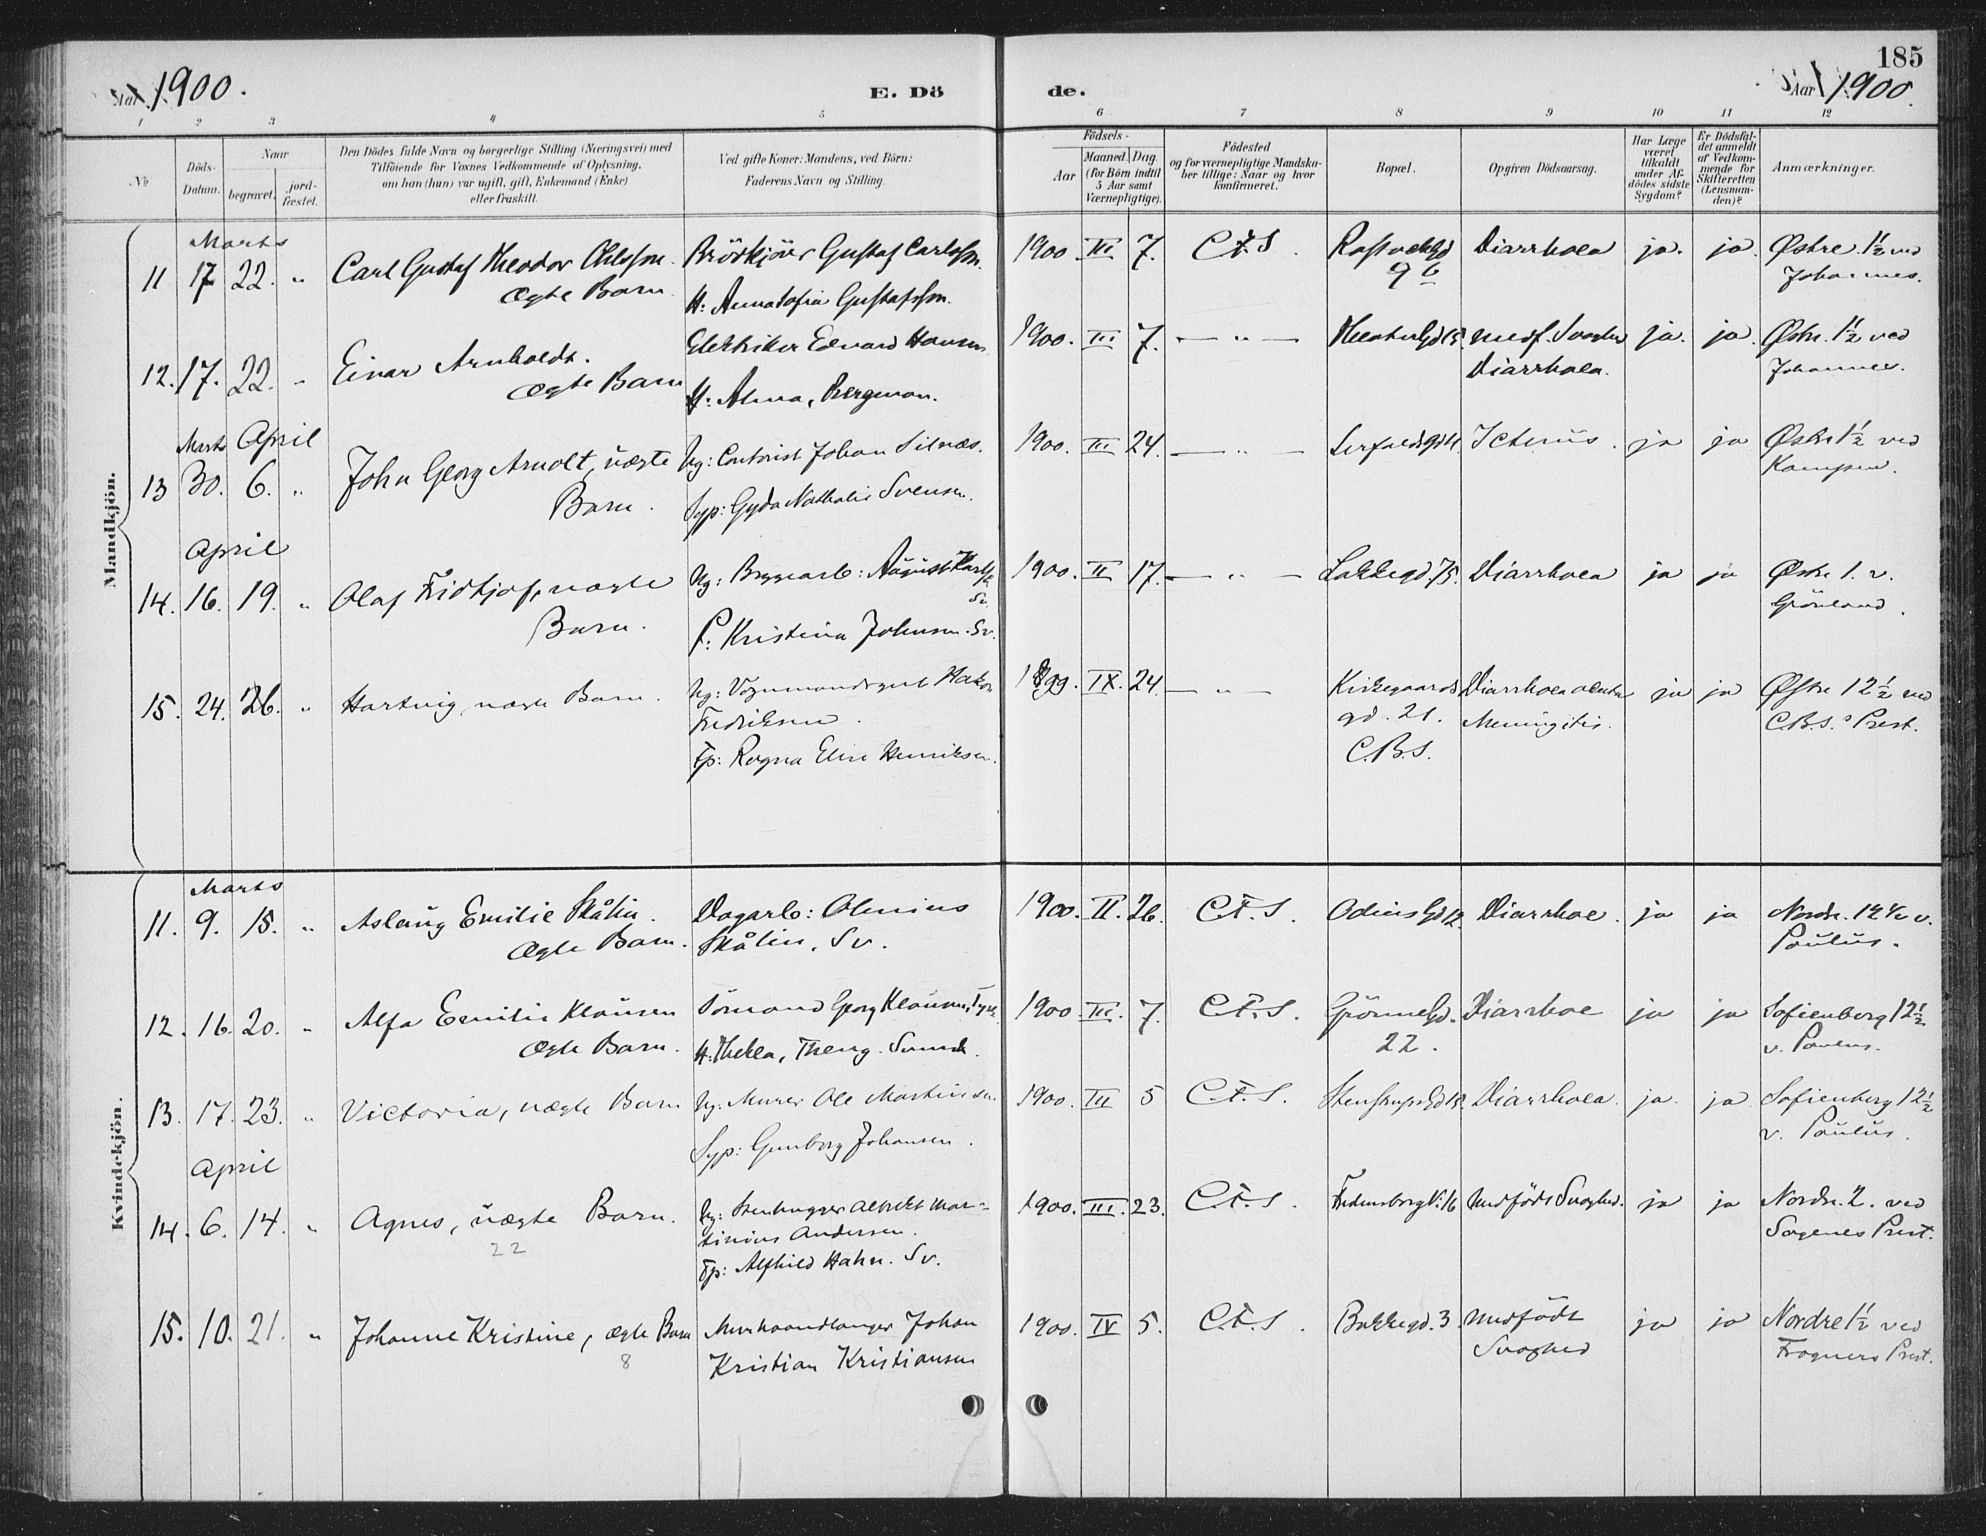 185
Aar 1900.
E. Dö
de.
Aar 1900.
1 2 3 4 5 6 7 8 9 10 11 12
No
Döds-
Datum.
Naar
begravet.
jord-
fæstet.
Den Dödes fulde Navn og borgerlige Stilling (Næringsvei) med
Tilföiende for Voxnes Vedkommende af Oplysning,
om han (hun) var ugift, gift, Enkemand (Enke)
eller fraskilt.
Ved gifte Koner: Mandens, ved Börn:
Faderens Navn og Stilling.
Födsels-
Aar
Maaned. Dag.
(for Börn indtil
5 Aar samt
Værnepligtige).
Födested
og for værnepligtige Mandska-
ber tillige: Naar og hvor
konfirmeret.
Bopæl.
Opgiven Dödsaarsag.
Har Læge
været
tilkaldt
under Af-
dödes sidste
Sygdom?
Er Dödsfal-
det anmeldt
af Vedkom-
mende for
Skifteretten
(Lensman-
den)?
Anmærkninger.
Mandkjön.
Marts
11 17 22. " Carl Gustaf Theodor Ohlsson. Gustaf Carlsson. 1900 III. 7. C.F.S. Diarrhoea ja. ja. Østre 1½ ved
Ægte Barn H: Anna Sofia Gustafsson. 9 b Johannes.
12. 17. 22. " Einar Arnholdt. Elektriker Edvard Hansen 1900. III 7. — " — Medf. Svaghed ja. ja. Østre 1½ ved
Ægte Barn H: Alma, Bergman. Diarrhoea. Johannes.
Marts April
13 30. 6. " John Georg Arnolt, uægte Ug: Contorist Johan Silnæs. 1900. III 24. — " — Icterus. ja ja Østre 1½ ved
Barn. Pp: Gyda Nathalie Svensen. Kampen.
April
14. 16. 19. " Olaf Fridtjof, uægte Ug: Bryggearb: August 1900. II 17. — " — Lakkegd. 75. Diarrhoea ja ja Østre 1. v.
Barn. P: Kristina Johnsen. Sv. Grönland.
15. 24. 26. " Hartvig, uægte Barn. Ug: Vognmandsgut Hakon 1899. IX. 24. — " — Kirkegaards Diarrhoea ja ja Østre 12½ ved
Fredriksen. gd. 21. Meningitis. C.B.S.s Prest.
Pp: Ragna Elise Henriksen. C.B.S.
Kvindekjön.
Marts
11. 9. 15. " Aslaug Emilie Skålin. Dagarb: 1900. II. 26. C.F.S. Odins Gd 12. Diarrhoe. ja ja Nordre. 12½ v.
Ægte Barn. Skålin. Sv. Paulus.
12. 16. 20. " Alfa Emilie Klausen Sömand Georg Klausen, 1900 III. 7. C.F.S. Grönne Gd. Diarrhoe ja ja Sofienberg 12½
Ægte Barn. H: Thekla, 22. v. Paulus.
13. 17. 23. " Victoria, uægte Barn Ug: Murer Ole Martinsen 1900. III 5 C.F.S. Stenstrups Gd 15. Diarrhoea. ja. ja Sofienberg 12½
Pp: Gunborg Johansen. v. Paulus.
April
14. 6. 14. " Agnes, uægte Barn. Ug: Stenhugger Albrekt Mar- 1900. III. 23. C.F.S. Fredensborgv. 16 Medfödt Svaghed. ja ja Nordre. 2. ved
22 tinius Andersen. Sagenes Prest.
Pp: Alfhild Hahn. Sv.
15. 10. 21. " Johanne Kristine, ægte Barn Murhaandlanger Johan 1900. IV 5. C.F.S. Bakkegd. 3. Medfödt ja ja Nordre 1½ ved
8 Kristian Kristiansen Svaghed Frogners Prest.